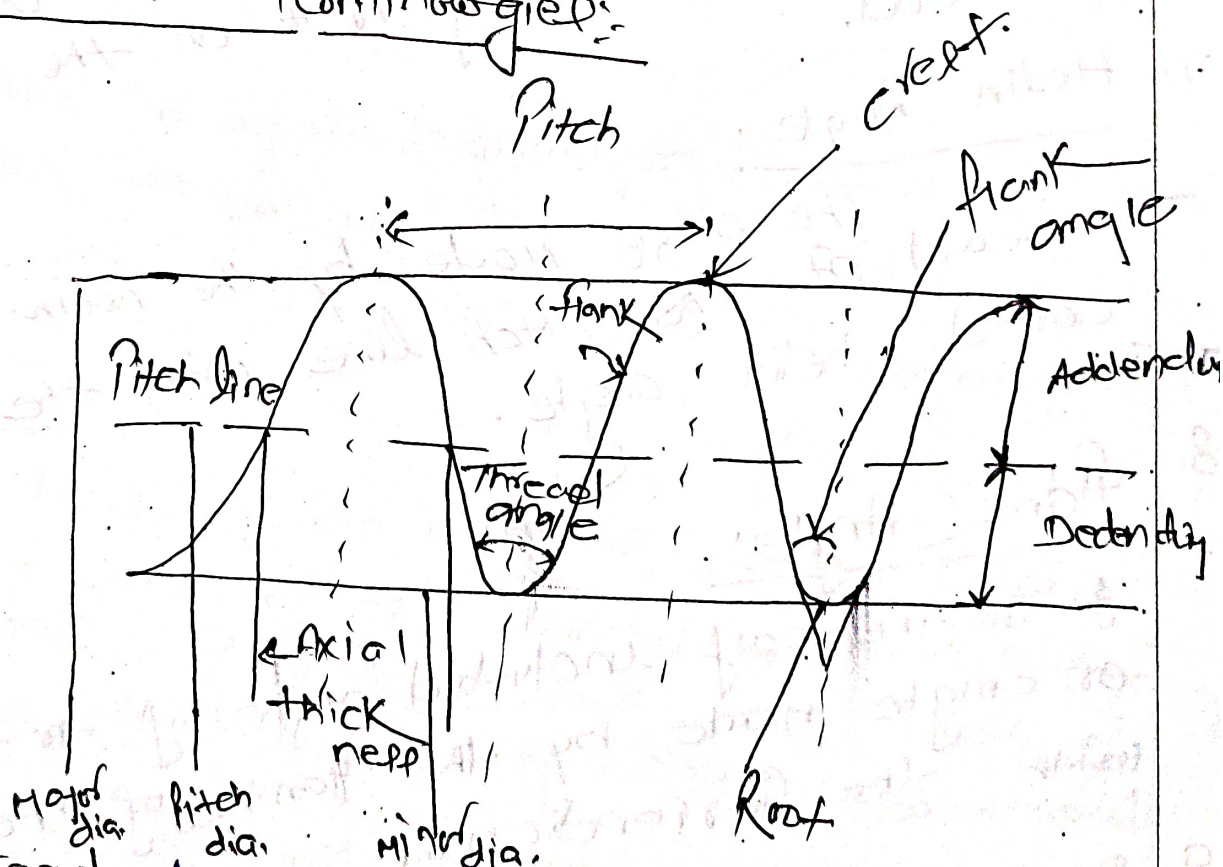 Pitch
Crest.
flank
angle
flank
Pitch line
Addendu
Thread
angle
Dedendu
Axial
thick
ness
Major
dia.
Pitch
dia.
Minor
dia.
Root